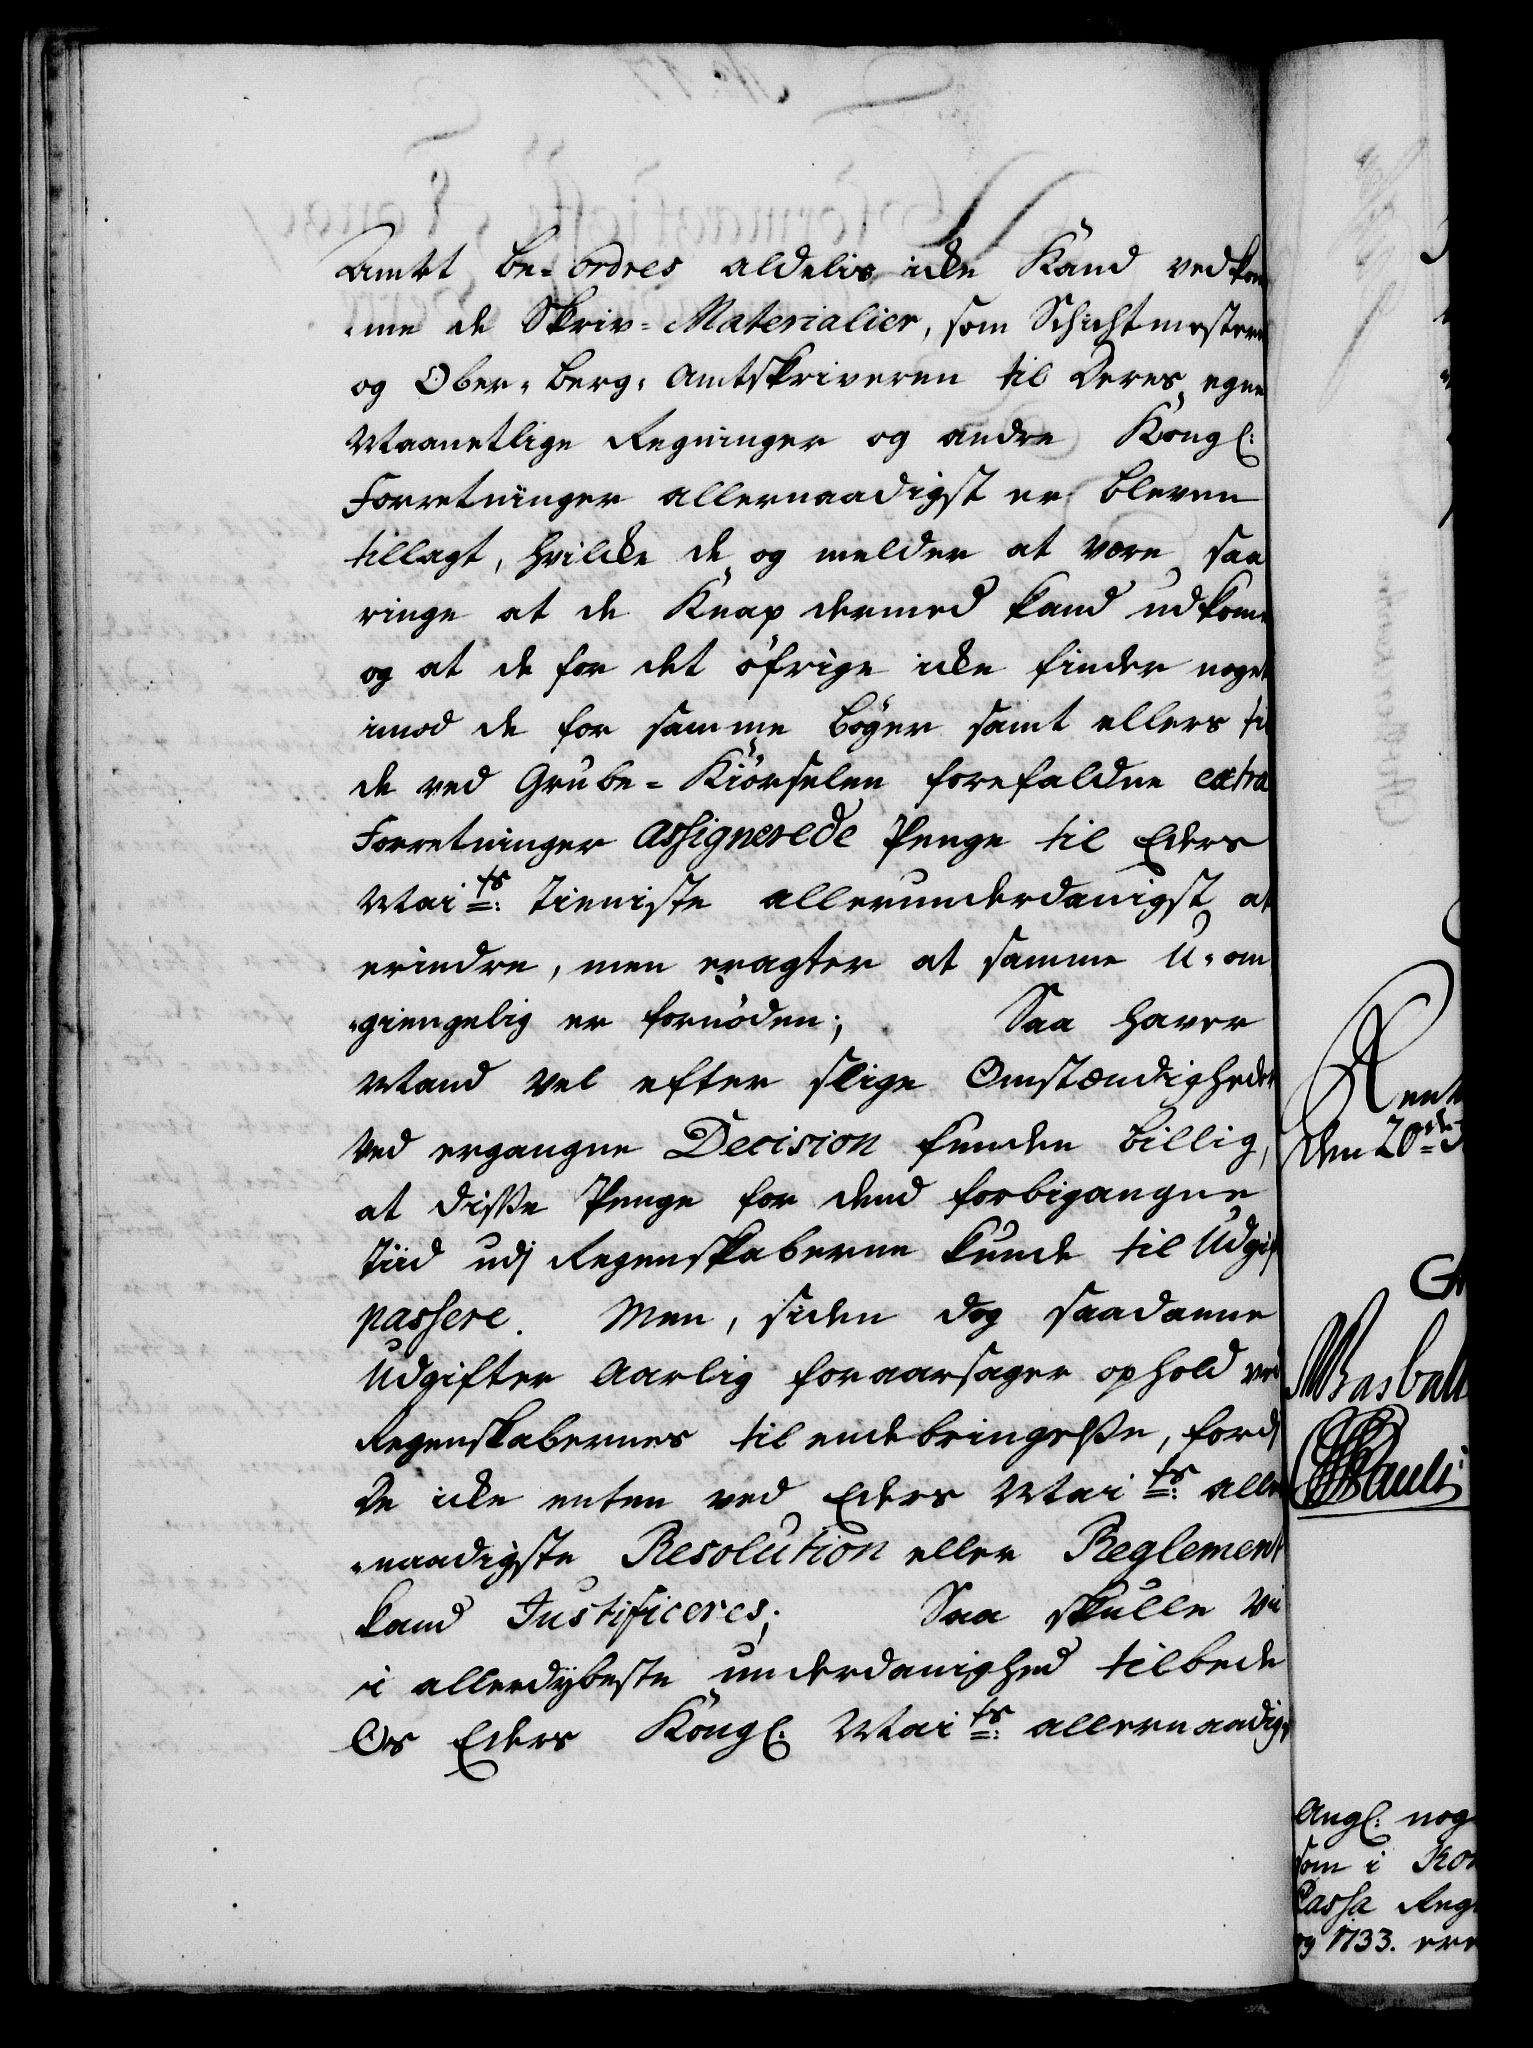 Amtet be-ordres aldelis icke Kand vedkom
-me de Skriv-Materialier, som Schichtmestern
og Ober-Berg-Amtskriveren til Deres egne
Maanetlige Regninger og andre Kongl:
Forretninger allernaadigst er bleven
tillagt, hvilcke de og melder at være saa
ringe at de Knap dermed kand udkome
og at de for det öfrige icke finder noget
imod de for samme Böger samt ellers til
de ved Grube-Kiörselen forefaldne extra
Forretninger assignerede Penge til Eders
Maits: Tieniste allerunderdanigst at
erindre, men eragter at samme U-om
-giengelig er fornöden; Saa haver
Mand vel efter slige Omstændigheder
ved ergangne Decision funden billig,
at disse Penge for dend forbigangne
Tiid udj Regenskaberne kunde til Udgift
passere. Men, siden dog saadanne
Udgifter Aarlig foraarsager ophold ved
Regenskabernes til endebringelse, fordj
De icke enten ved Eders Maits: aller
-naadigste Resolution eller Reglement
kand Justificeres; Saa skulle Vii
i allerdybeste underdanighed tilbede
Os Eders Kongl: Maits: allernaadigst
Rent
den 20de
Basball
Pauli
Angl: nog
som i Kon
Cassa Reg
og 1733. ere